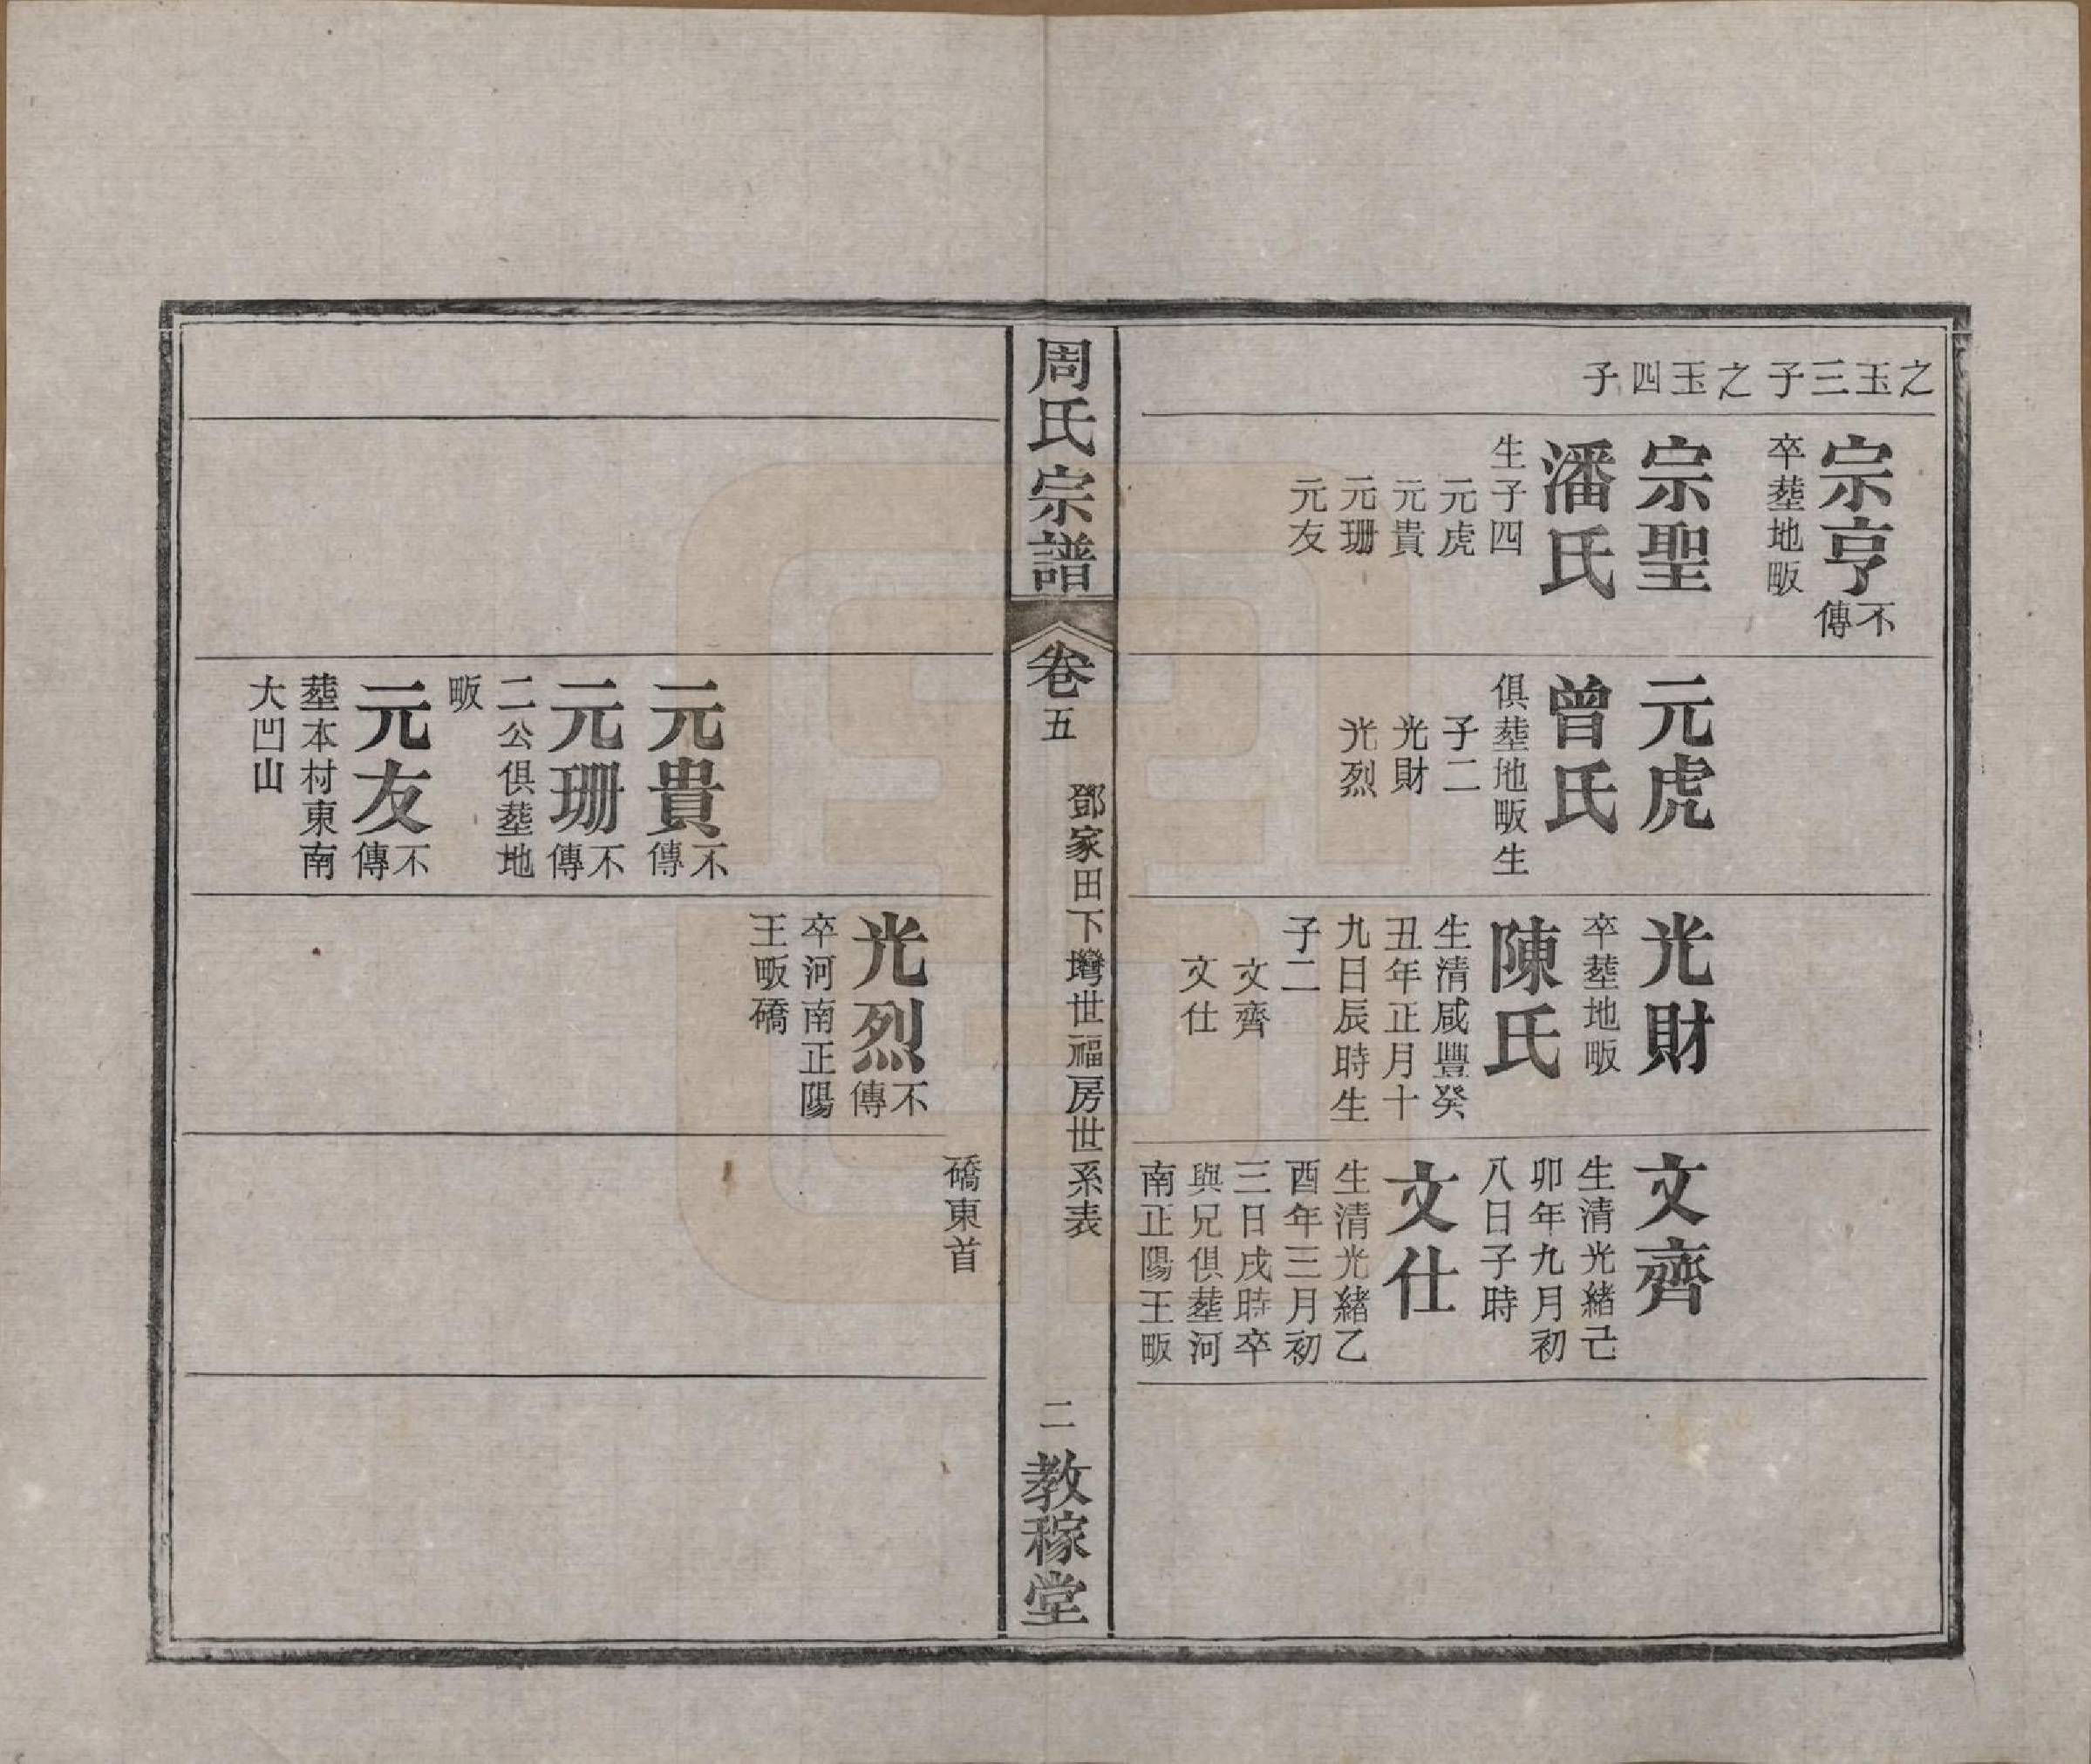 之玉三子
之玉四子
宗亨不傳
卒塟地畈
宗聖
潘氏
生子四
元虎
元貴
元珊
元友
元虎
曾氏
俱塟地畈生
子二
光財
光烈
光財
卒塟地畈
陳氏
生清咸豐癸
丑年正月十
九日辰時生
子二
文齊
文仕
文齊
生清光緒己
卯年九月初
八日子時
文仕
生清光緒乙
酉年三月初
三日戌時卒
與兄俱塟河
南正陽王畈
周氏宗譜
卷五
鄧家田下塆世福房世系表
二
教稼堂
元貴不傳
元珊不傳
二公俱塟地
畈
元友不傳
塟本村東南
大凹山
光烈不傳
卒河南正陽
王畈礄
礄東首